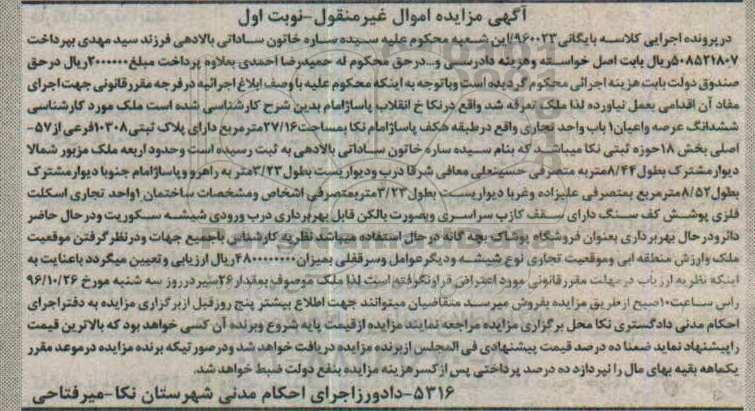 آگهی مزایده اموال غیرمنقول-نوبت اول
در پرونده اجرایی کلاسه بایگانی ۹۶۰۰۲۳ این شعبه محکوم علیه سیده ساره خاتون ساداتی بالادهی فرزند سید مهدی بپرداخت
۵۰۸۵۲۱۸۰۷ ریال بابت اصل خواسته وهزینه دادرسی و...درحق محکوم له حمیدرضا احمدی بعلاوه پرداخت مبلغ ۲۰۰۰۰۰۰ ریال درحق
صندوق دولت بابت هزینه اجرائی محکوم گردیده است وباتوجه به اینکه محکوم علیه با وصف ابلاغ اجرائیه درفرجه مقررقانونی جهت اجرای
مفاد آن اقدامی بعمل نیاورده لذا ملک تعرفه شد واقع درنکا خ انقلاب پاساژامام بدین شرح کارشناسی شده است ملک مورد کارشناسی
ششدانگ عرصه واعیان۱ باب واحد تجاری واقع درطبقه هکف پاساژامام نکا بمساحت۲۷/۱۶مترمربع دارای پلاک ثبتی۱۰۳۰۸فرعی از۵۷-
اصلی بخش ۱۸حوزه ثبتی نکا میباشد که بنام سیده ساره خاتون ساداتی بالادهی به ثبت رسیده است وحدود اربعه ملک مزبور شمالا
دیوار مشترک بطول۸/۴۴متربه متصرفی حسینعلی معافی شرقا درب ودیواریست بطول۳/۲۳متر به راهرو وپاساژامام جنوبا دیوارمشترک
بطول۸/۵۲مترمربع بمتصرفی علیزاده وغربا دیواریست بطول۳/۲۳متربمتصرفی اشخاص ومشخصات ساختمان ۱واحد تجاری اسکلت
فلزی پوشش کف سنگ دارای سقف کازب سراسری وبصورت بالکن قابل بهره‌برداری درب ورودی شیشه سکوریت ودرحال حاضر
دائرودرحال بهره‌برداری بعنوان فروشگاه پوشاک بچه گانه درحال استفاده میباشد نظریه کارشناس باجمیع جهات ودرنظرگرفتن موقعیت
ملک وارزش منطقه ایی وموقعیت تجاری نوع شیشه ودیگرعوامل وسرقفلی بمیزان۴۸۰۰۰۰۰۰۰۰ریال ارزیابی وتعیین میگردد باعنایت به
اینکه نظریه ارزیاب درمهلت مقررقانونی مورد اعتراض قرارنگرفته است لذا ملک موصوف بمقدار۲۶سیردر روز سه شنبه مورخ ۹۶/۱۰/۲۶
راس ساعت۱۰صبح ازطریق مزایده بفروش میرسد متقاضیان میتوانند جهت اطلاع بیشتر پنج روزقبل ازبرگزاری مزایده به دفتراجرای
احکام مدنی دادگستری نکا محل برگزاری مزایده مراجعه نمایند مزایده ازقیمت پایه شروع وبرنده آن کسی خواهد بود که بالاترین قیمت
راپیشنهاد نماید ضمنا ده درصد قیمت پیشنهادی فی المجلس ازبرنده مزایده دریافت خواهد شد ودرصورتیکه برنده مزایده درموعد مقرر
یکماهه بقیه بهای مال را نپردازد ده درصد پرداختی پس ازکسرهزینه مزایده بنفع دولت ضبط خواهد شد.
۵۳۱۶-دادورزاجرای احکام مدنی شهرستان نکا-میرفتاحی